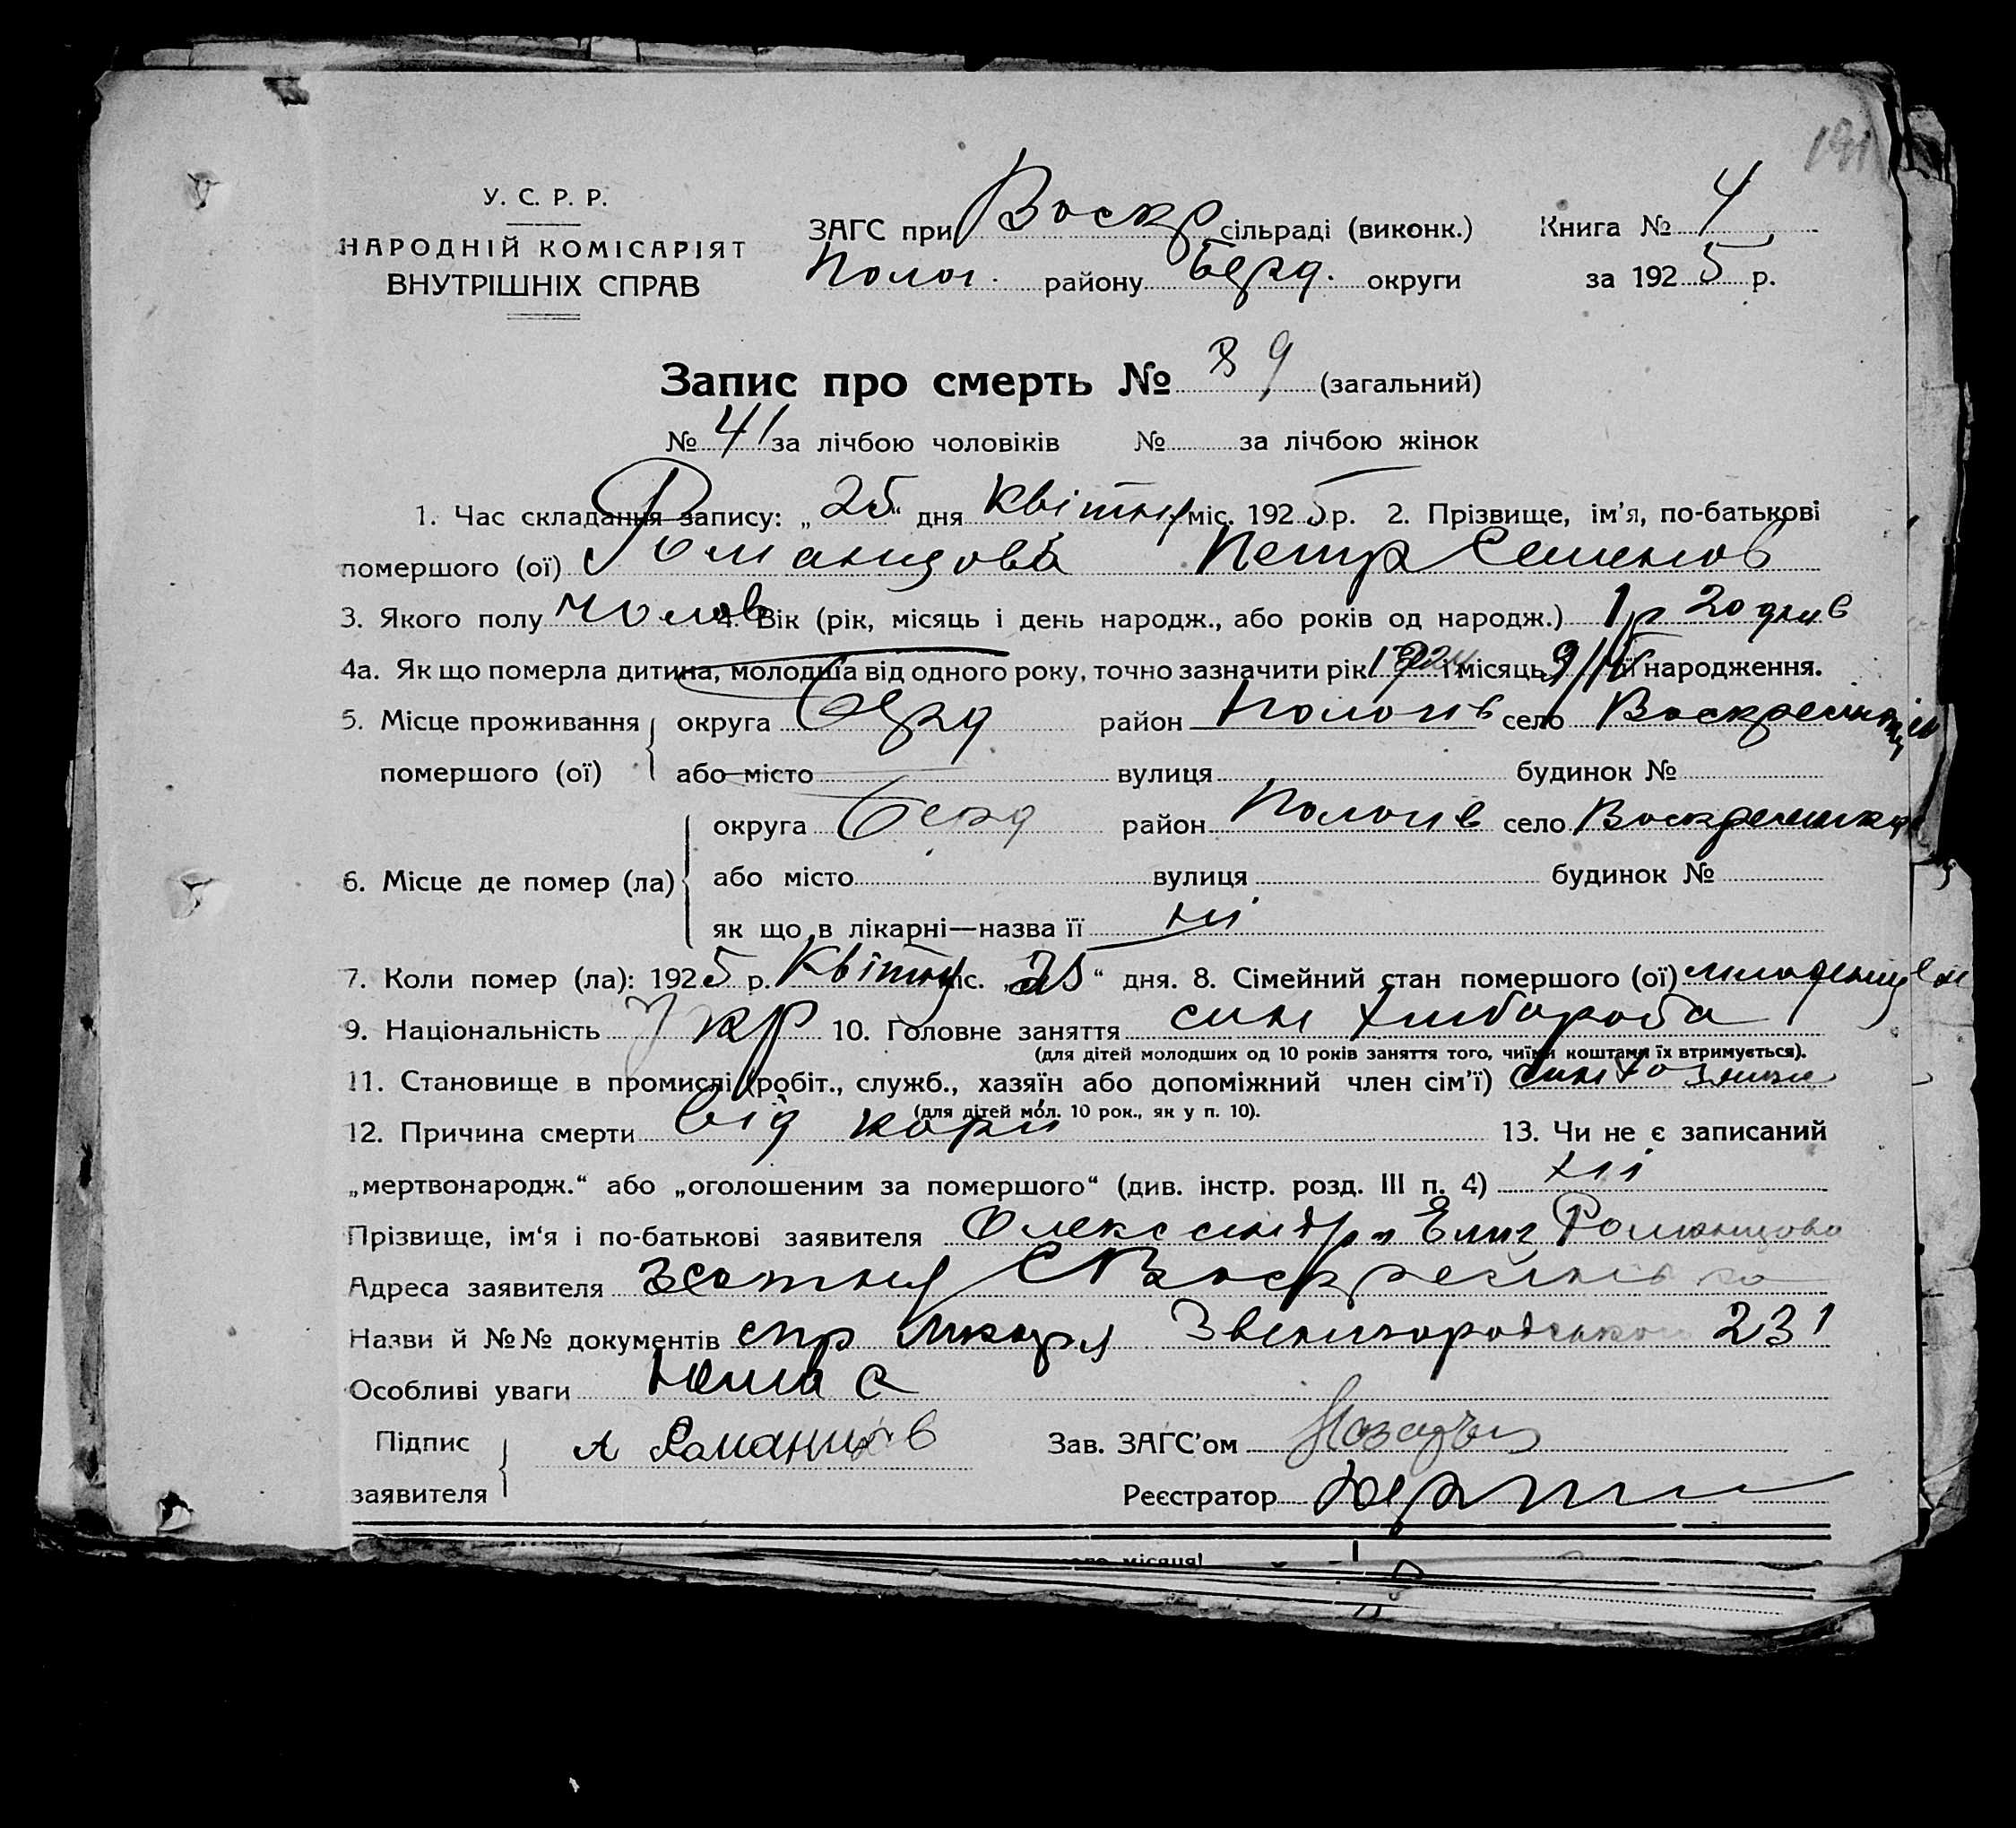 191
У. С. Р. Р.
НАРОДНІЙ КОМІСАРІЯТ
ВНУТРІШНІХ СПРАВ
ЗАГС при Воскр сільраді (виконк.) Книга № 4
Полог. району Берд. округи за 1925 р.
Запис про смерть № 89 (загальний)
№ 41 за лічбою чоловіків № за лічбою жінок
1. Час складання запису: „25“ дня Квітня міс. 1925 р. 2. Прізвище, ім'я, по-батькові
помершого (ої) Романцова Петр Семенов
3. Якого полу чолов 4. Вік (рік, місяць і день народж., або років од народж.) 1 р 20 днив
4а. Як що померла дитина, молодша від одного року, точно зазначити рік 1924 і місяць її народження.
5. Місце проживання округа Берд район Пологив село
помершого (ої) або місто вулиця будинок №
округа Берд район Пологив село Воскресенка
6. Місце де помер (ла) або місто вулиця будинок №
як що в лікарні—назва її ні
7. Коли помер (ла): 1925 р. Квітня міс. „25“ дня. 8. Сімейний стан помершого (ої) младенцем
9. Національність Укр 10. Головне заняття син хлибороба
(для дітей молодших од 10 років заняття того, чиїми коштами їх втримується).
11. Становище в промислі (робіт., служб., хазяїн або допоміжний член сім'ї) син
(для дітей мол. 10 рок., як у п. 10).
12. Причина смерти від кори 13. Чи не є записаний
„мертвонародж.“ або „оголошеним за помершого“ (див. інстр. розд. III п. 4) ні
Прізвище, ім'я і по-батькові заявителя Романцова
Адреса заявителя 3 сотня С Воскресенка
Назви й №№ документів спр ликаря Звенигородського 231
Особливі уваги Нима
Підпис А Романцов Зав. ЗАГС'ом
заявителя Реєстратор
місяця